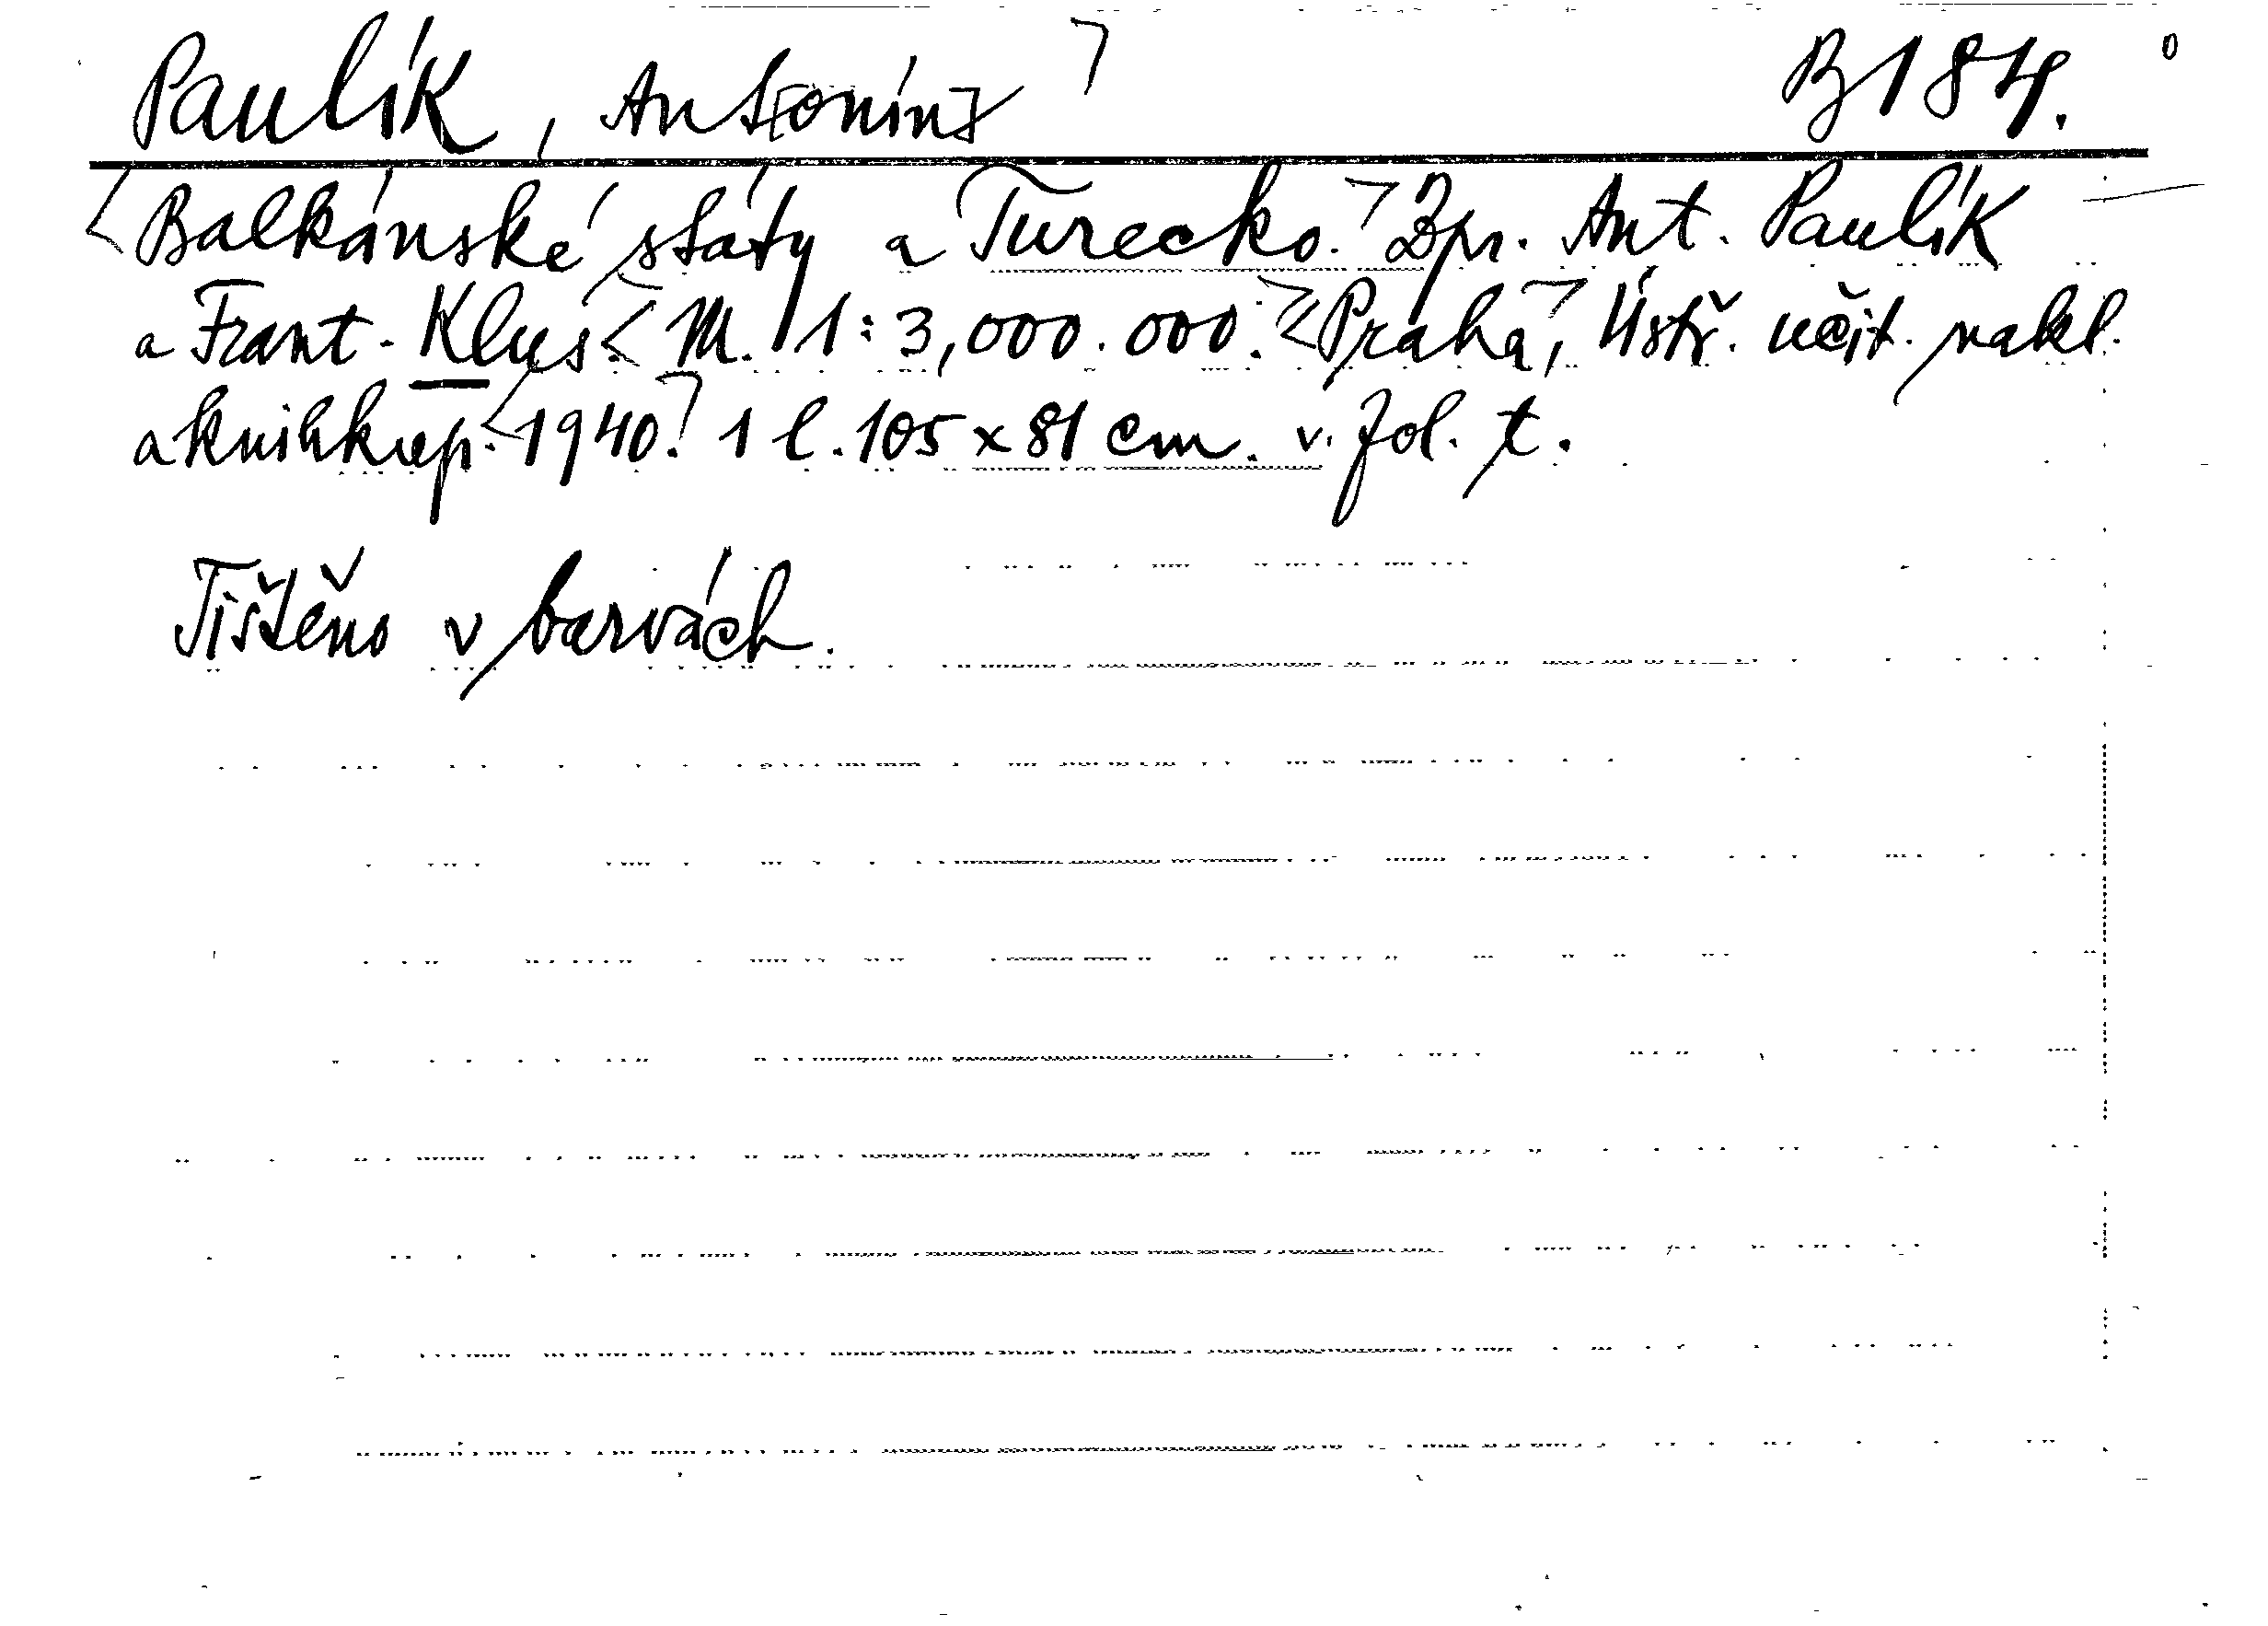 Paulík, Ant[onín] B 184.
Balkánské státy a Turecko. Zpr. Ant. Paulík
a Frant. Klus. M. 1:3,000.000. Praha, Ústř. učit. nakl.
a knihkup. 1940. 1 l. 105 x 81 cm. v. fol. t.
Tištěno v barvách.